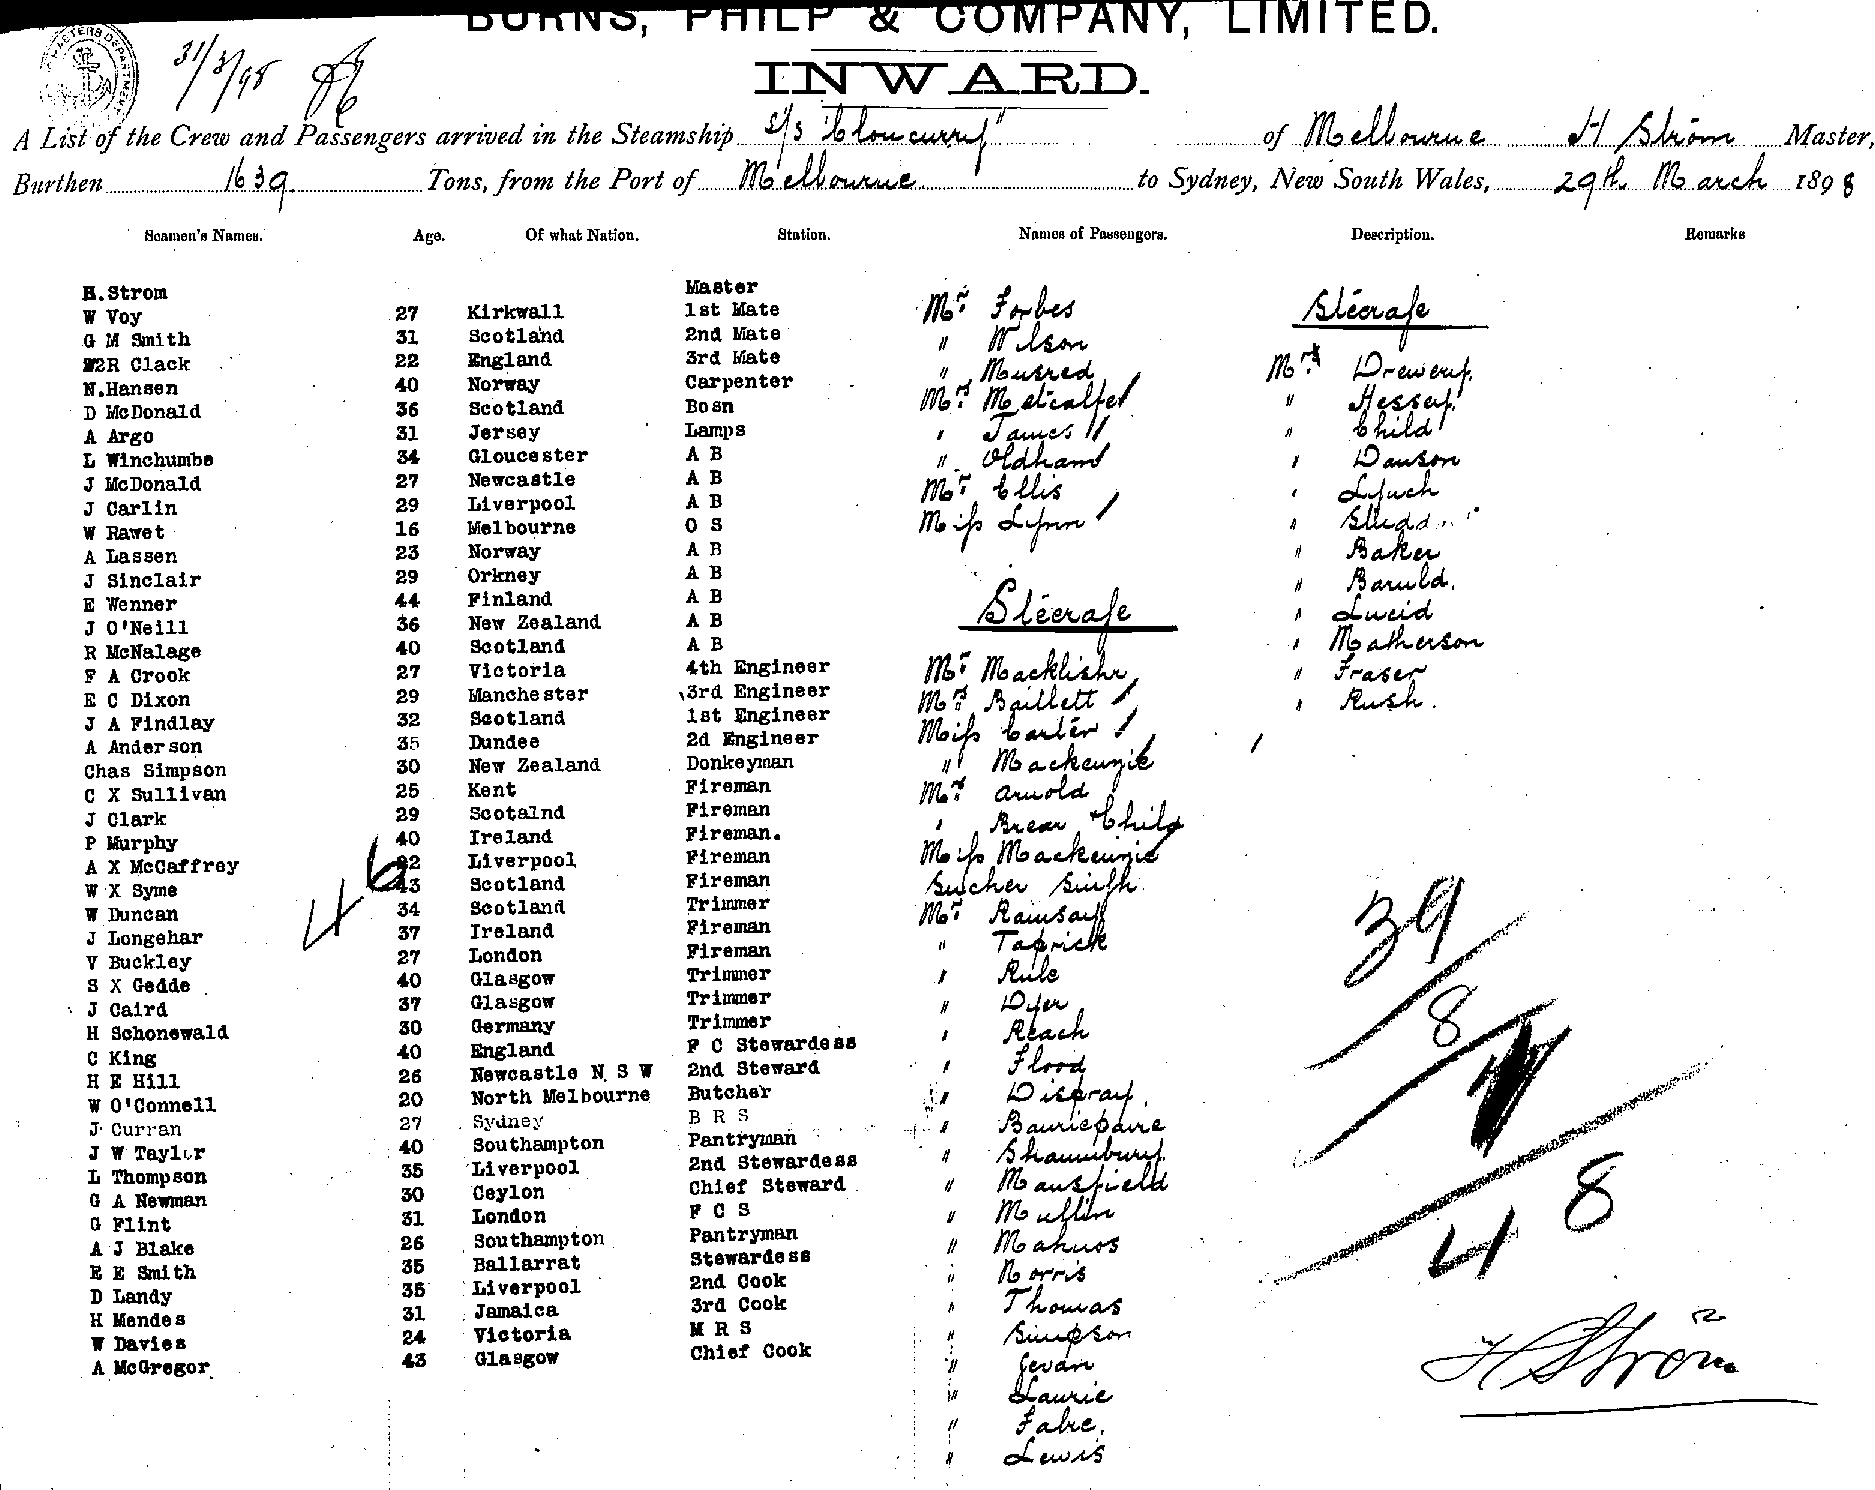 BURNS, PHILP & COMPANY, LIMITED.
INWARD.
31/3/98
A List of the Crew and Passengers arrived in the Steamship s/s "Cloncurry" of Melbourne H Ström Master,
Burthen 1639 Tons, from the Port of Melbourne to Sydney, New South Wales, 29th March 1898
Seamen's Names. Age. Of what Nation. Station. Names of Passengers. Description. Remarks
H.Strom Master
W Voy 27 Kirkwall 1st Mate
G M Smith 31 Scotland 2nd Mate
W2R Clack 22 England 3rd Mate
N.Hansen 40 Norway Carpenter
D McDonald 36 Scotland Bosn
A Argo 31 Jersey Lamps
L Winchumbe 34 Gloucester A B
J McDonald 27 Newcastle A B
J Carlin 29 Liverpool A B
W Rawet 16 Melbourne O S
A Lassen 23 Norway A B
J Sinclair 29 Orkney A B
E Wenner 44 Finland A B
J O'Neill 36 New Zealand A B
R McNalage 40 Scotland A B
F A Crook 27 Victoria 4th Engineer
E C Dixon 29 Manchester 3rd Engineer
J A Findlay 32 Scotland 1st Engineer
A Anderson 35 Dundee 2d Engineer
Chas Simpson 30 New Zealand Donkeyman
C X Sullivan 25 Kent Fireman
J Clark 29 Scotalnd Fireman
P Murphy 40 Ireland Fireman.
A X McCaffrey 32 Liverpool Fireman
W X Syme 43 Scotland Fireman
W Duncan 34 Scotland Trimmer
J Longehar 37 Ireland Fireman
V Buckley 27 London Fireman
S X Gedde 40 Glasgow Trimmer
J Caird 37 Glasgow Trimmer
H Schonewald 30 Germany Trimmer
C King 40 England F C Stewardess
H E Hill 26 Newcastle N S W 2nd Steward
W O'Connell 20 North Melbourne Butcher
J Curran 27 Sydney B R S
J W Taylor 40 Southampton Pantryman
L Thompson 35 Liverpool 2nd Stewardess
G A Newman 30 Ceylon Chief Steward
G Flint 31 London F C S
A J Blake 26 Southampton Pantryman
E E Smith 35 Ballarrat Stewardess
D Landy 35 Liverpool 2nd Cook
H Mendes 31 Jamaica 3rd Cook
W Davies 24 Victoria M R S
A McGregor 43 Glasgow Chief Cook
46
Mr. Forbes
" Wilson
" Musred
Mrs. Metcalfe
" James
" Oldham
Mr. Ellis
Miss Lynn
Steerage
Mr. Macklishr
Mrs Baillett
Miss Carter
" Mackenzie
Mrs Arnold
" Brear + Child
Miss Mackenzie
Sucher Singh
Mr. Ramsay
" Taprick
" Rule
" Dyer
" Reach
" Flood
" Disgray
" Bauriepaire
" Shannbury
" Mansfield
" Mullin
" Mahuos
" Norris
" Thomas
" Simpson
" Jevan
" Laurie
" Fabre.
" Lewis
Steerage
Mrs Drewery
" Hessey
" Child
" Dawson
" Lynch
" Sludd
" Baker
" Baruld.
" Lucid
" Matherson
" Fraser
" Rush.
39
8
48
H Ström